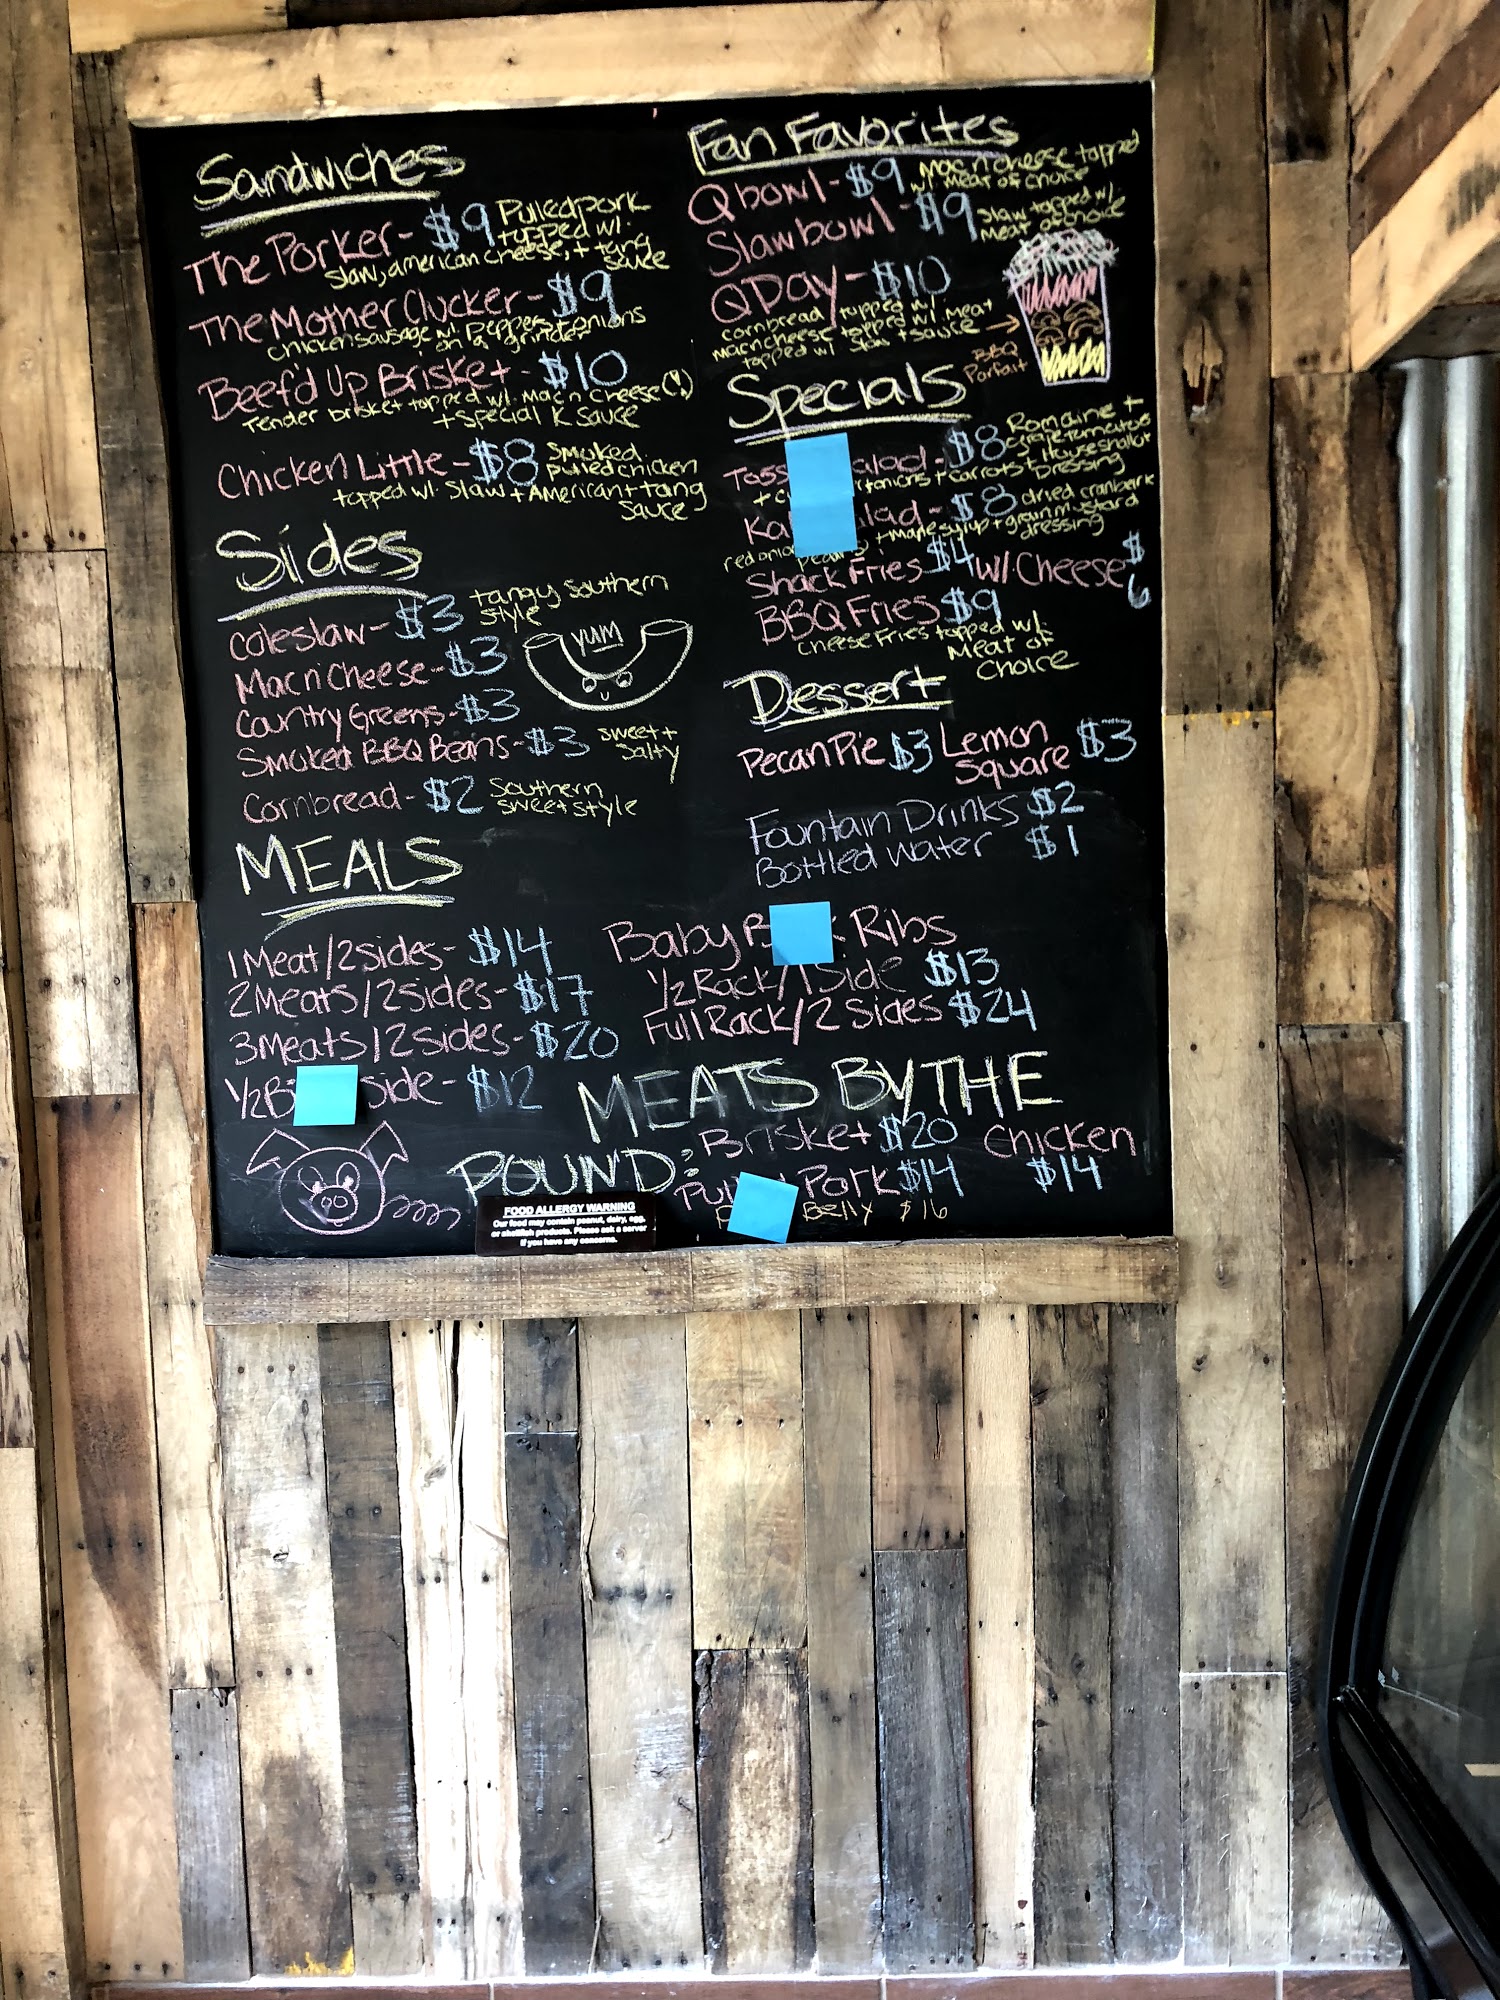 Sandwiches
The Porker - $9 Pulled pork
topped w/.
slaw, american cheese, + tang
sauce
The Mother Clucker - $9
chicken sausage w/. Peppers + onions
on a grinder
Beef'd Up Brisket - $10
Tender brisket topped w/. Mac n' Cheese (!)
+ Special K Sauce
Chicken Little - $8 Smoked
pulled chicken
topped w/. Slaw + American + tang
sauce
Sides
Coleslaw - $3 tangy southern
style
Mac n' Cheese - $3
yum
Country Greens - $3
Smoked BBQ Beans - $3 sweet +
salty
Cornbread - $2 Southern
sweet style
MEALS
1 Meat/2 sides - $14
2 Meats/2 sides - $17
3 Meats/2 sides - $20
1/2 B side - $12
Fan Favorites
Q bowl - $9 Mac n Cheese topped
w/ Meat of choice
Slaw bowl - $9 Slaw topped w/.
Meat of choice
Q Day - $10
cornbread topped w/.
mac n cheese topped w/. meat
topped w/ slaw + sauce →
BBQ
Parfait
Specials
Toss alad - $8 Romaine +
grape tomatoes
+ c r onions + carrots + House shallot
Dressing
Ka lad - $8 dried cranberr
red onio + maple syrup + grain mustard
dressing
Shack Fries $4 w/. Cheese $6
BBQ Fries $9
Cheese Fries topped w/.
Meat of
Choice
Dessert
Pecan Pie $3 Lemon
Square $3
Fountain Drinks $2
Bottled Water $1
Baby B k Ribs
1/2 Rack/1 Side $13
Full Rack/2 Sides $24
MEATS BY THE
POUND: Brisket $20 Chicken
$14
Pul Pork $14
Belly $16
FOOD ALLERGY WARNING
Our food may contain peanut, dairy, egg,
or shellfish products. Please ask a server
if you have any concerns.